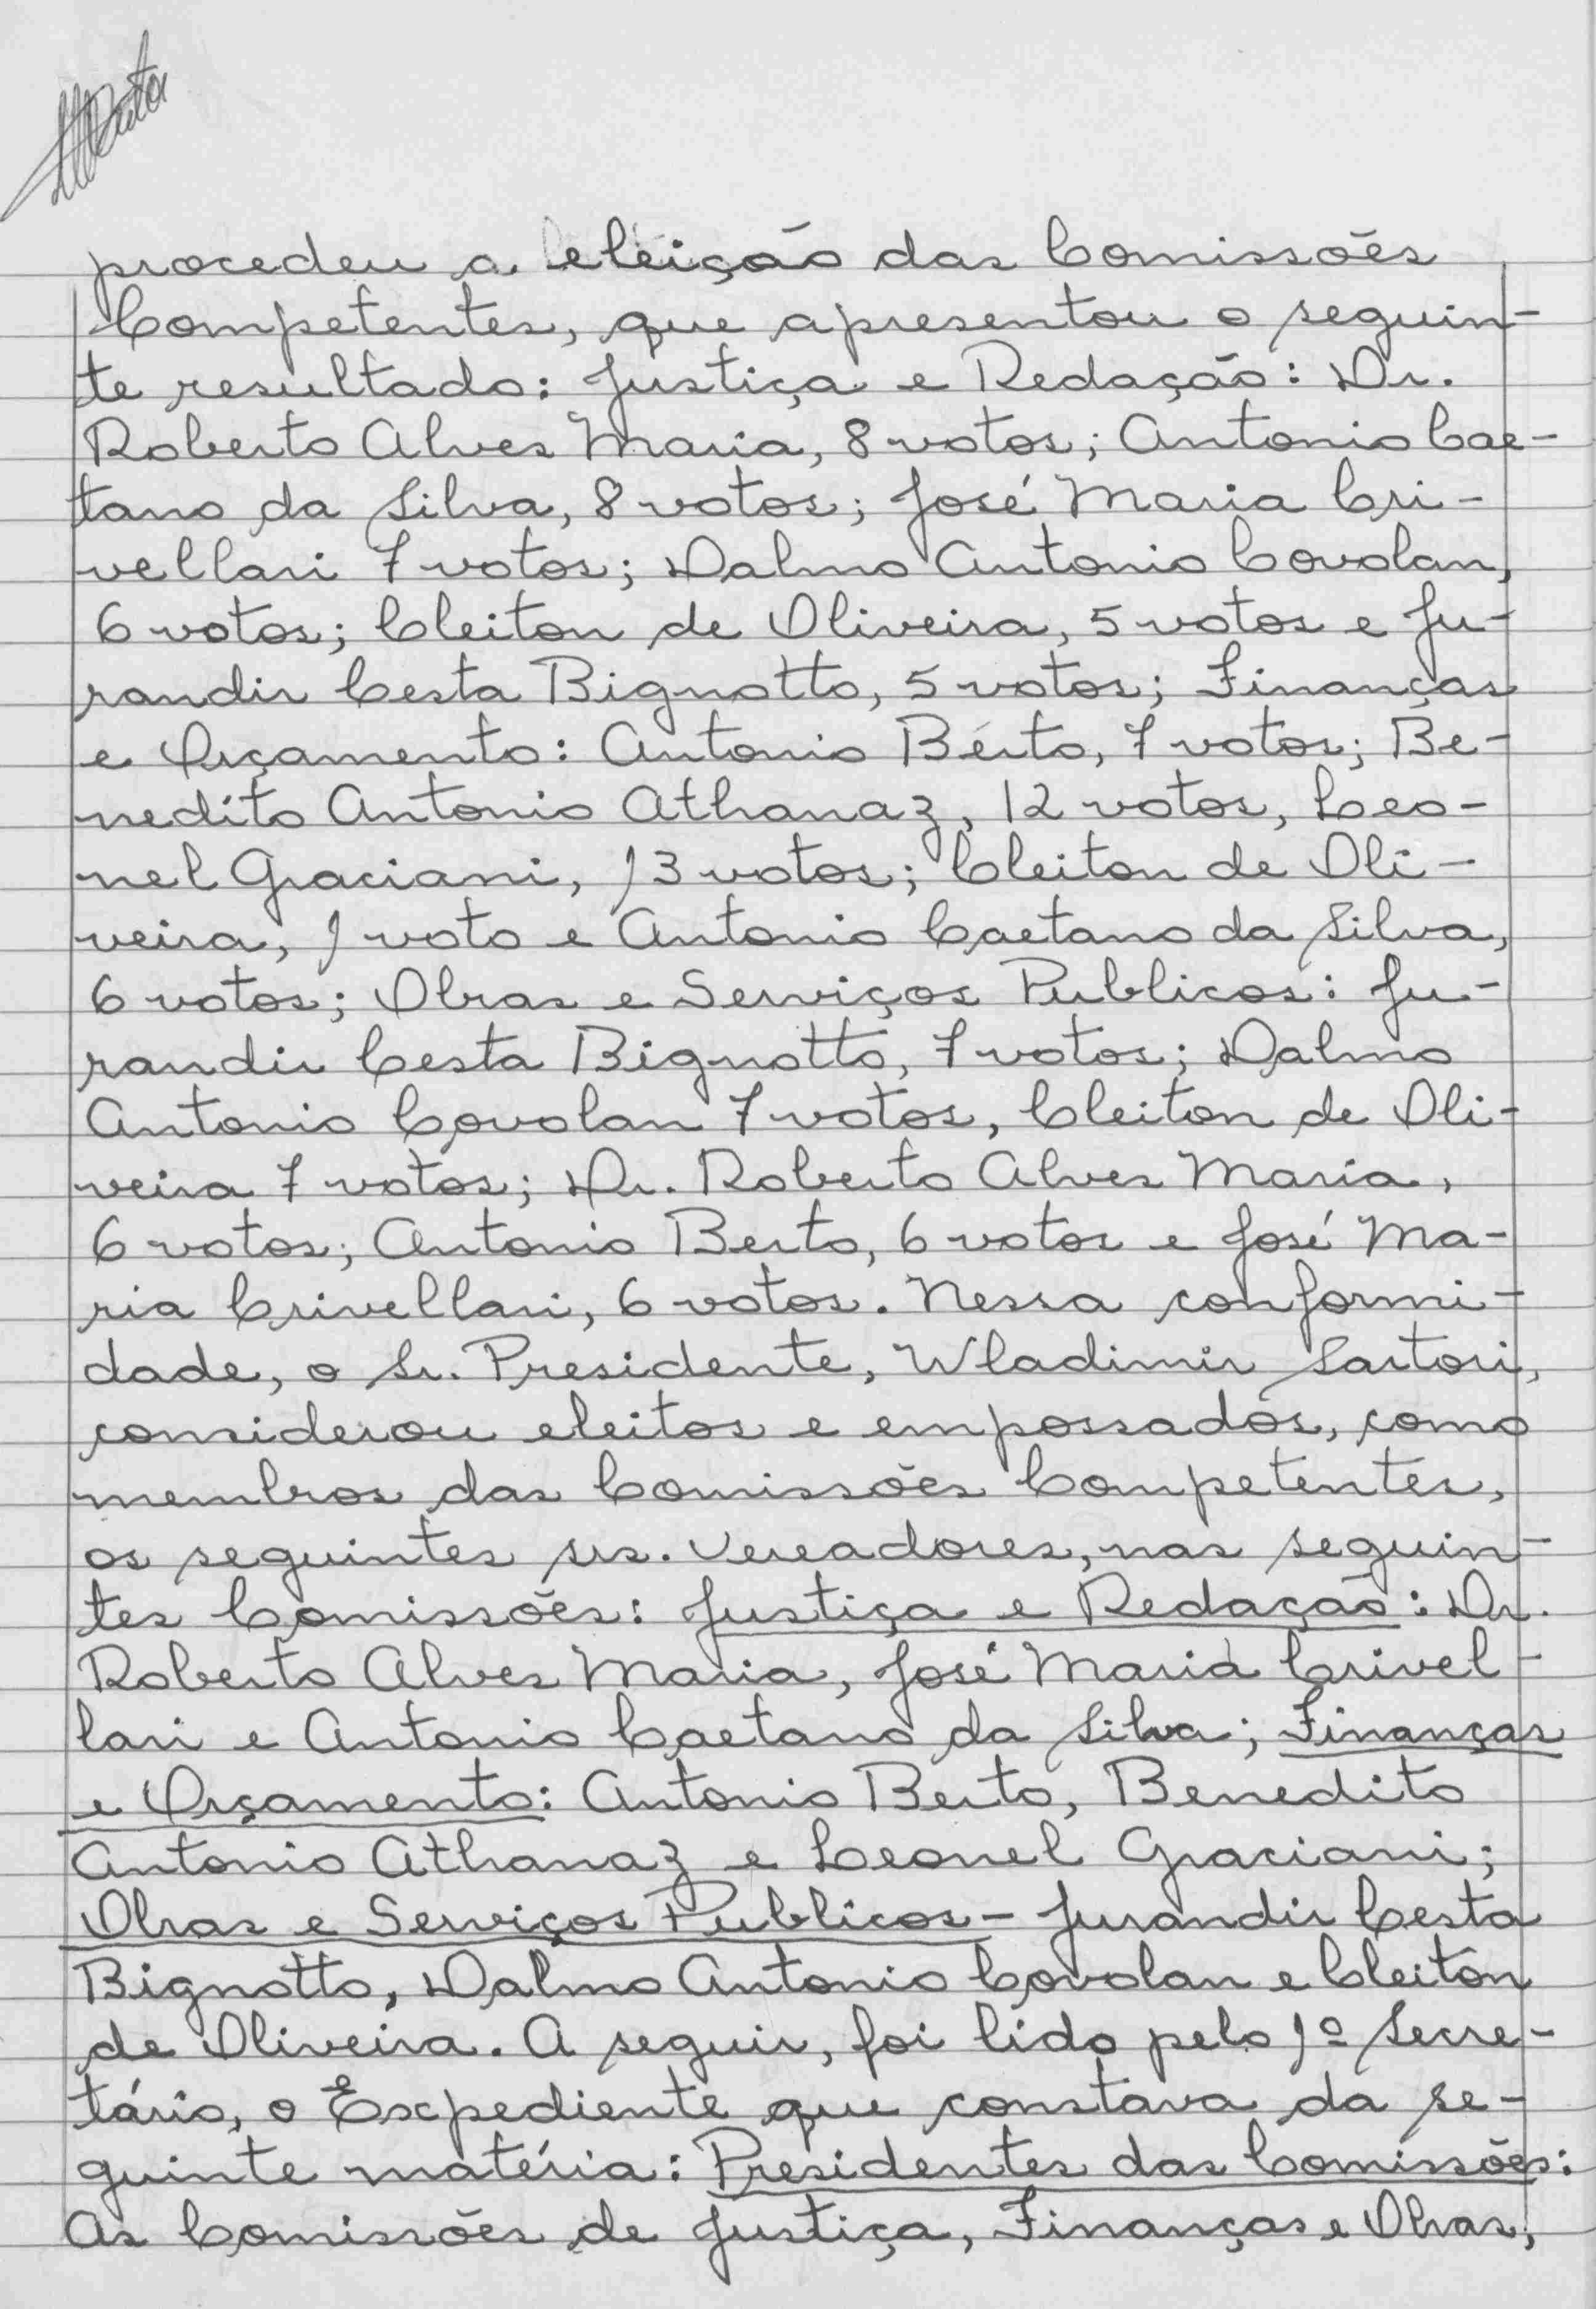 procedeu a eleição das Comissões
Competentes, que apresentou o seguin-
te resultado: Justiça e Redação: Dr.
Roberto Alves Maria, 8 votos; Antonio Cae-
tano da Silva, 8 votos; José Maria Cri-
vellari 7 votos; Dalmo Antonio Covolan,
6 votos; Cleiton de Oliveira, 5 votos e Ju-
randir Cesta Bignotto, 5 votos; Finanças
e Orçamento: Antonio Bérto, 7 votos; Be-
nedito Antonio Athanaz, 12 votos, Leo-
nel Graciani, 13 votos; Cleiton de Oli-
veira, 1 voto e Antonio Caetano da Silva,
6 votos; Obras e Serviços Publicos: Ju-
randir Cesta Bignotto, 7 votos; Dalmo
Antonio Covolan 7 votos, Cleiton de Oli-
veira 7 votos; Dr. Roberto Alves Maria,
6 votos; Antonio Berto, 6 votos e José Ma-
ria Crivellari, 6 votos. Nessa conformi-
dade, o Sr. Presidente, Wladimir Sartori,
considerou eleitos e empossados, como
membros das Comissões Competentes,
os seguintes srs. Vereadores, nas seguin-
tes Comissões: Justiça e Redação: Dr.
Roberto Alves Maria, José Maria Crivel-
lari e Antonio Caetano da Silva; Finanças
e Orçamento: Antonio Berto, Benedito
Antonio Athanaz e Leonel Graciani;
Obras e Serviços Publicos - Jurandir Cesta
Bignotto, Dalmo Antonio Covolan e Cleiton
de Oliveira. A seguir, foi lido pelo 1º Secre-
tário, o Expediente que constava da se-
guinte matéria: Presidentes das Comissões:
As Comissões de Justiça, Finanças e Obras,